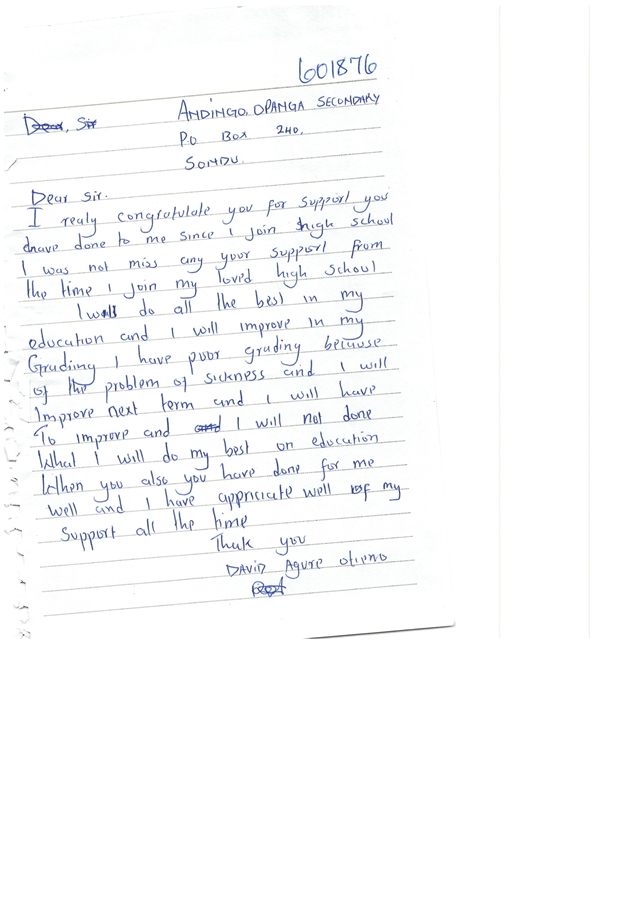 601876
Dear, Sir
ANDINGO OPANGA SECONDARY
P.O BOX 240,
SONDU.
Dear Sir.
I realy congratulate you for support you
have done to me since I join high school
I was not miss any your support from
the time I join my loved high school
I will do all the best in my
education and I will improve in my
Grading I have poor grading because
of the problem of sickness and I will
Improve next term and I will have
To improve and and I will not done
What I will do my best on education
When you also you have done for me
well and I have appriciate well of my
support all the time
Thank you
DAVID Agure Otieno